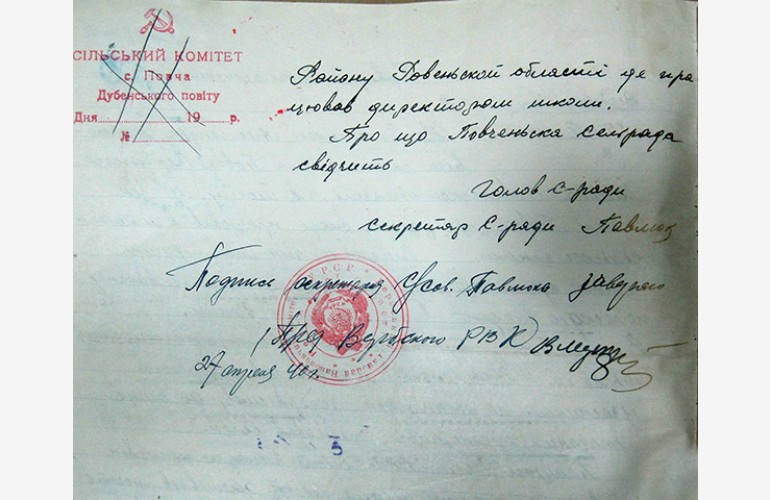 СІЛЬСЬКИЙ КОМІТЕТ
с. Повча
Дубенського повіту
Дня 19 р.
№
Району Ровенькой області де пра
цював директором школи.
Про що Повченьска Селрада
свідчить
Голов С-ради
секретар С-ради Павлюк
Подпись секретаря Павлюка заверяю
Пред РВК
27 апреля 46 г.
У.Р.С.Р.